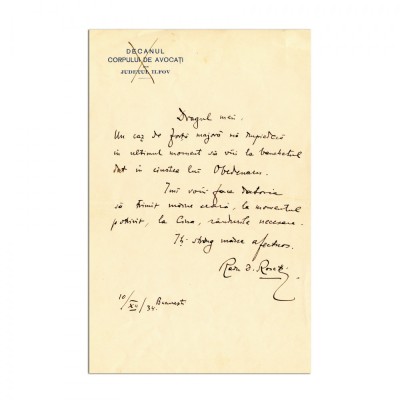 DECANUL
CORPULUI DE AVOCAȚI
JUDEȚUL ILFOV
Dragul meu,
Un caz de forță majoră mă împiedică
în ultimul moment să viu la banchetul
dat în cinstea lui Obedenaru.
Îmi voiu face datoria
să trimit mâine seară, la momentul
potrivit, la Cina, rândurile necesare.
Îți strâng mâna afectuos.
Radu D. Rosetti
10/XII/34. București